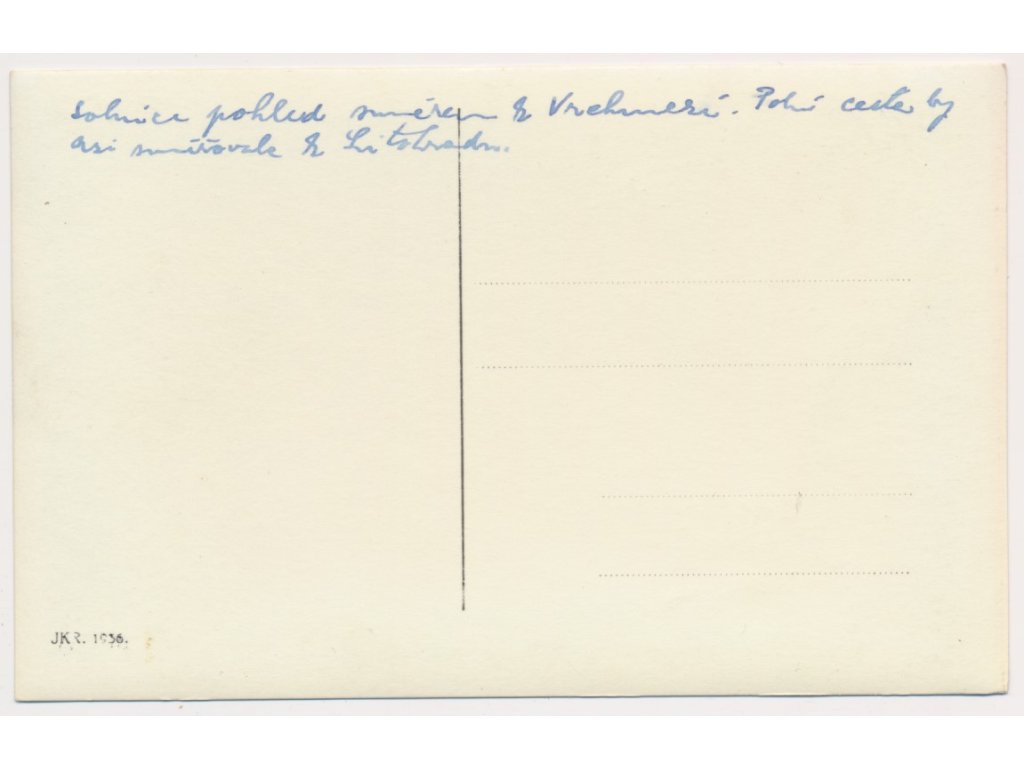 Solnice pohled směrem k Vrchmezí. Polní cesta by
asi směřovala k Litohradu.
JKR. 1936.